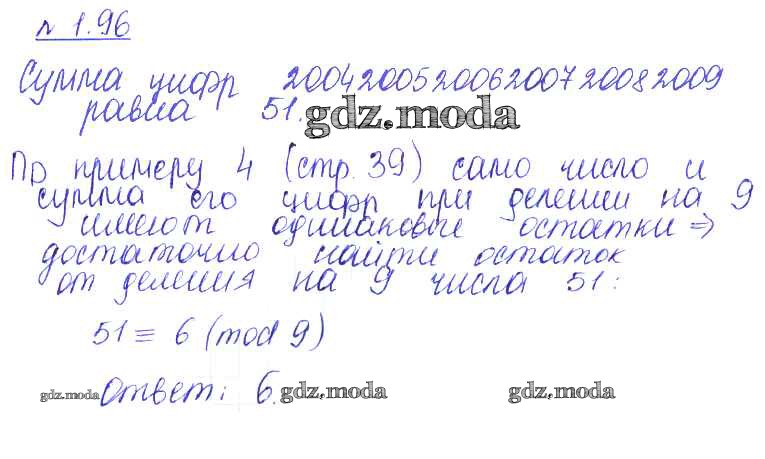 № 1.96
Сумма цифр 200420052006200720082009
равна 51.
gdz.moda
По примеру 4 (стр. 39) само число и
сумма его цифр при делении на 9
имеют одинаковые остатки ⇒
достаточно найти остаток
от деления на 9 числа 51:
51 ≡ 6 (mod 9)
gdz.moda Ответ: 6. gdz.moda gdz.moda